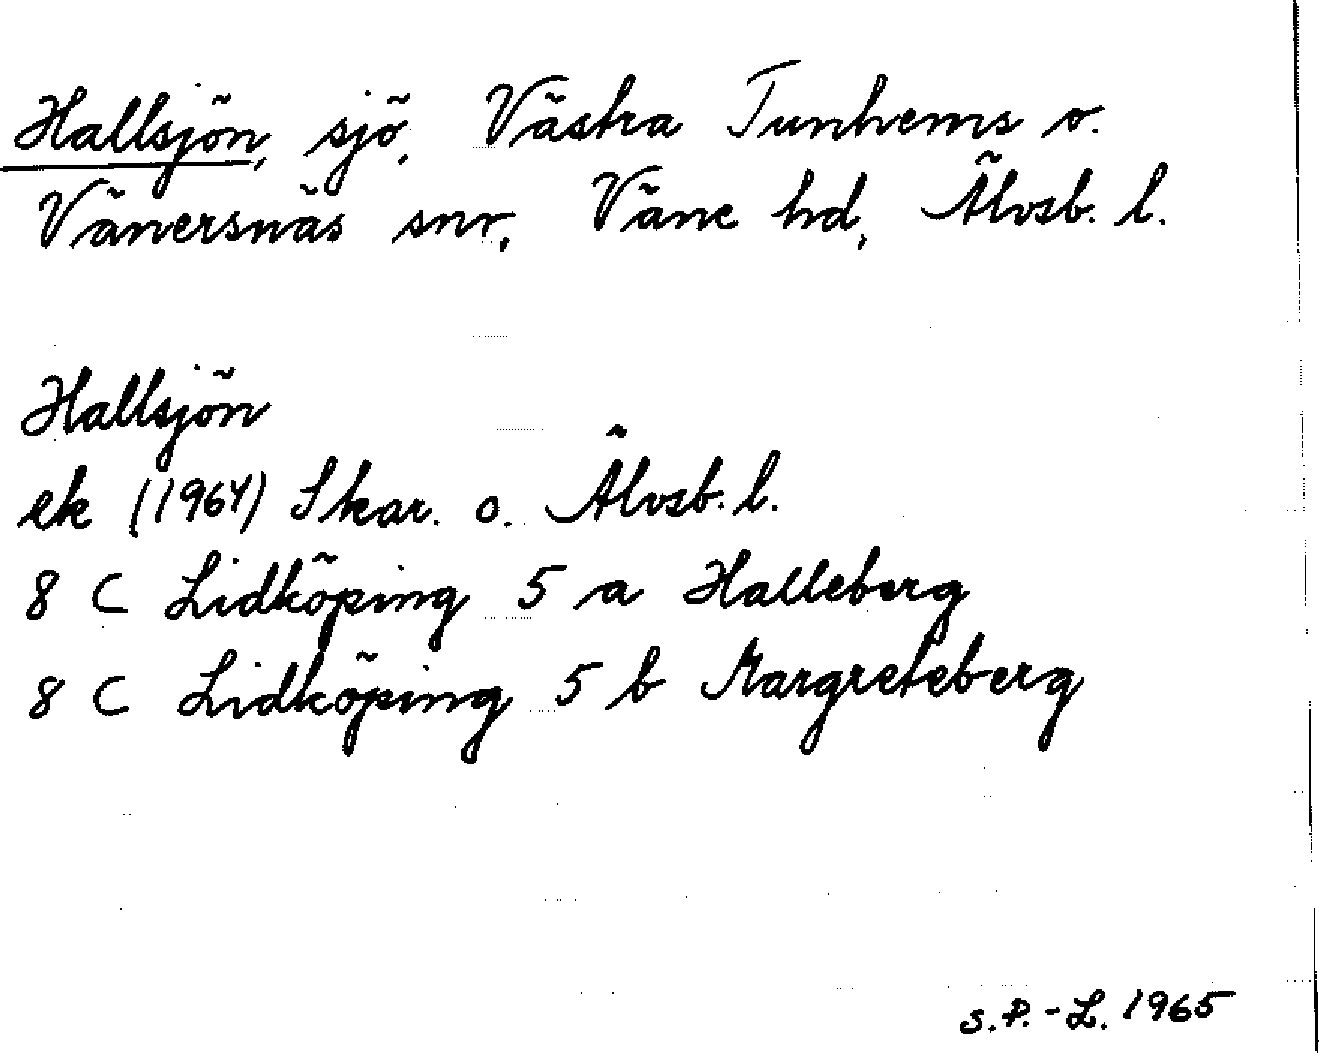 Hallsjön, sjö, Västra Tunhems o.
Vänersnäs snr, Väne hd, Älvsb. l.
Hallsjön
ek (1964) Skar. o. Älvsb. l.
8 C Lidköping 5 a Halleberg
8 C Lidköping 5 b Margreteberg
S.P.-L. 1965